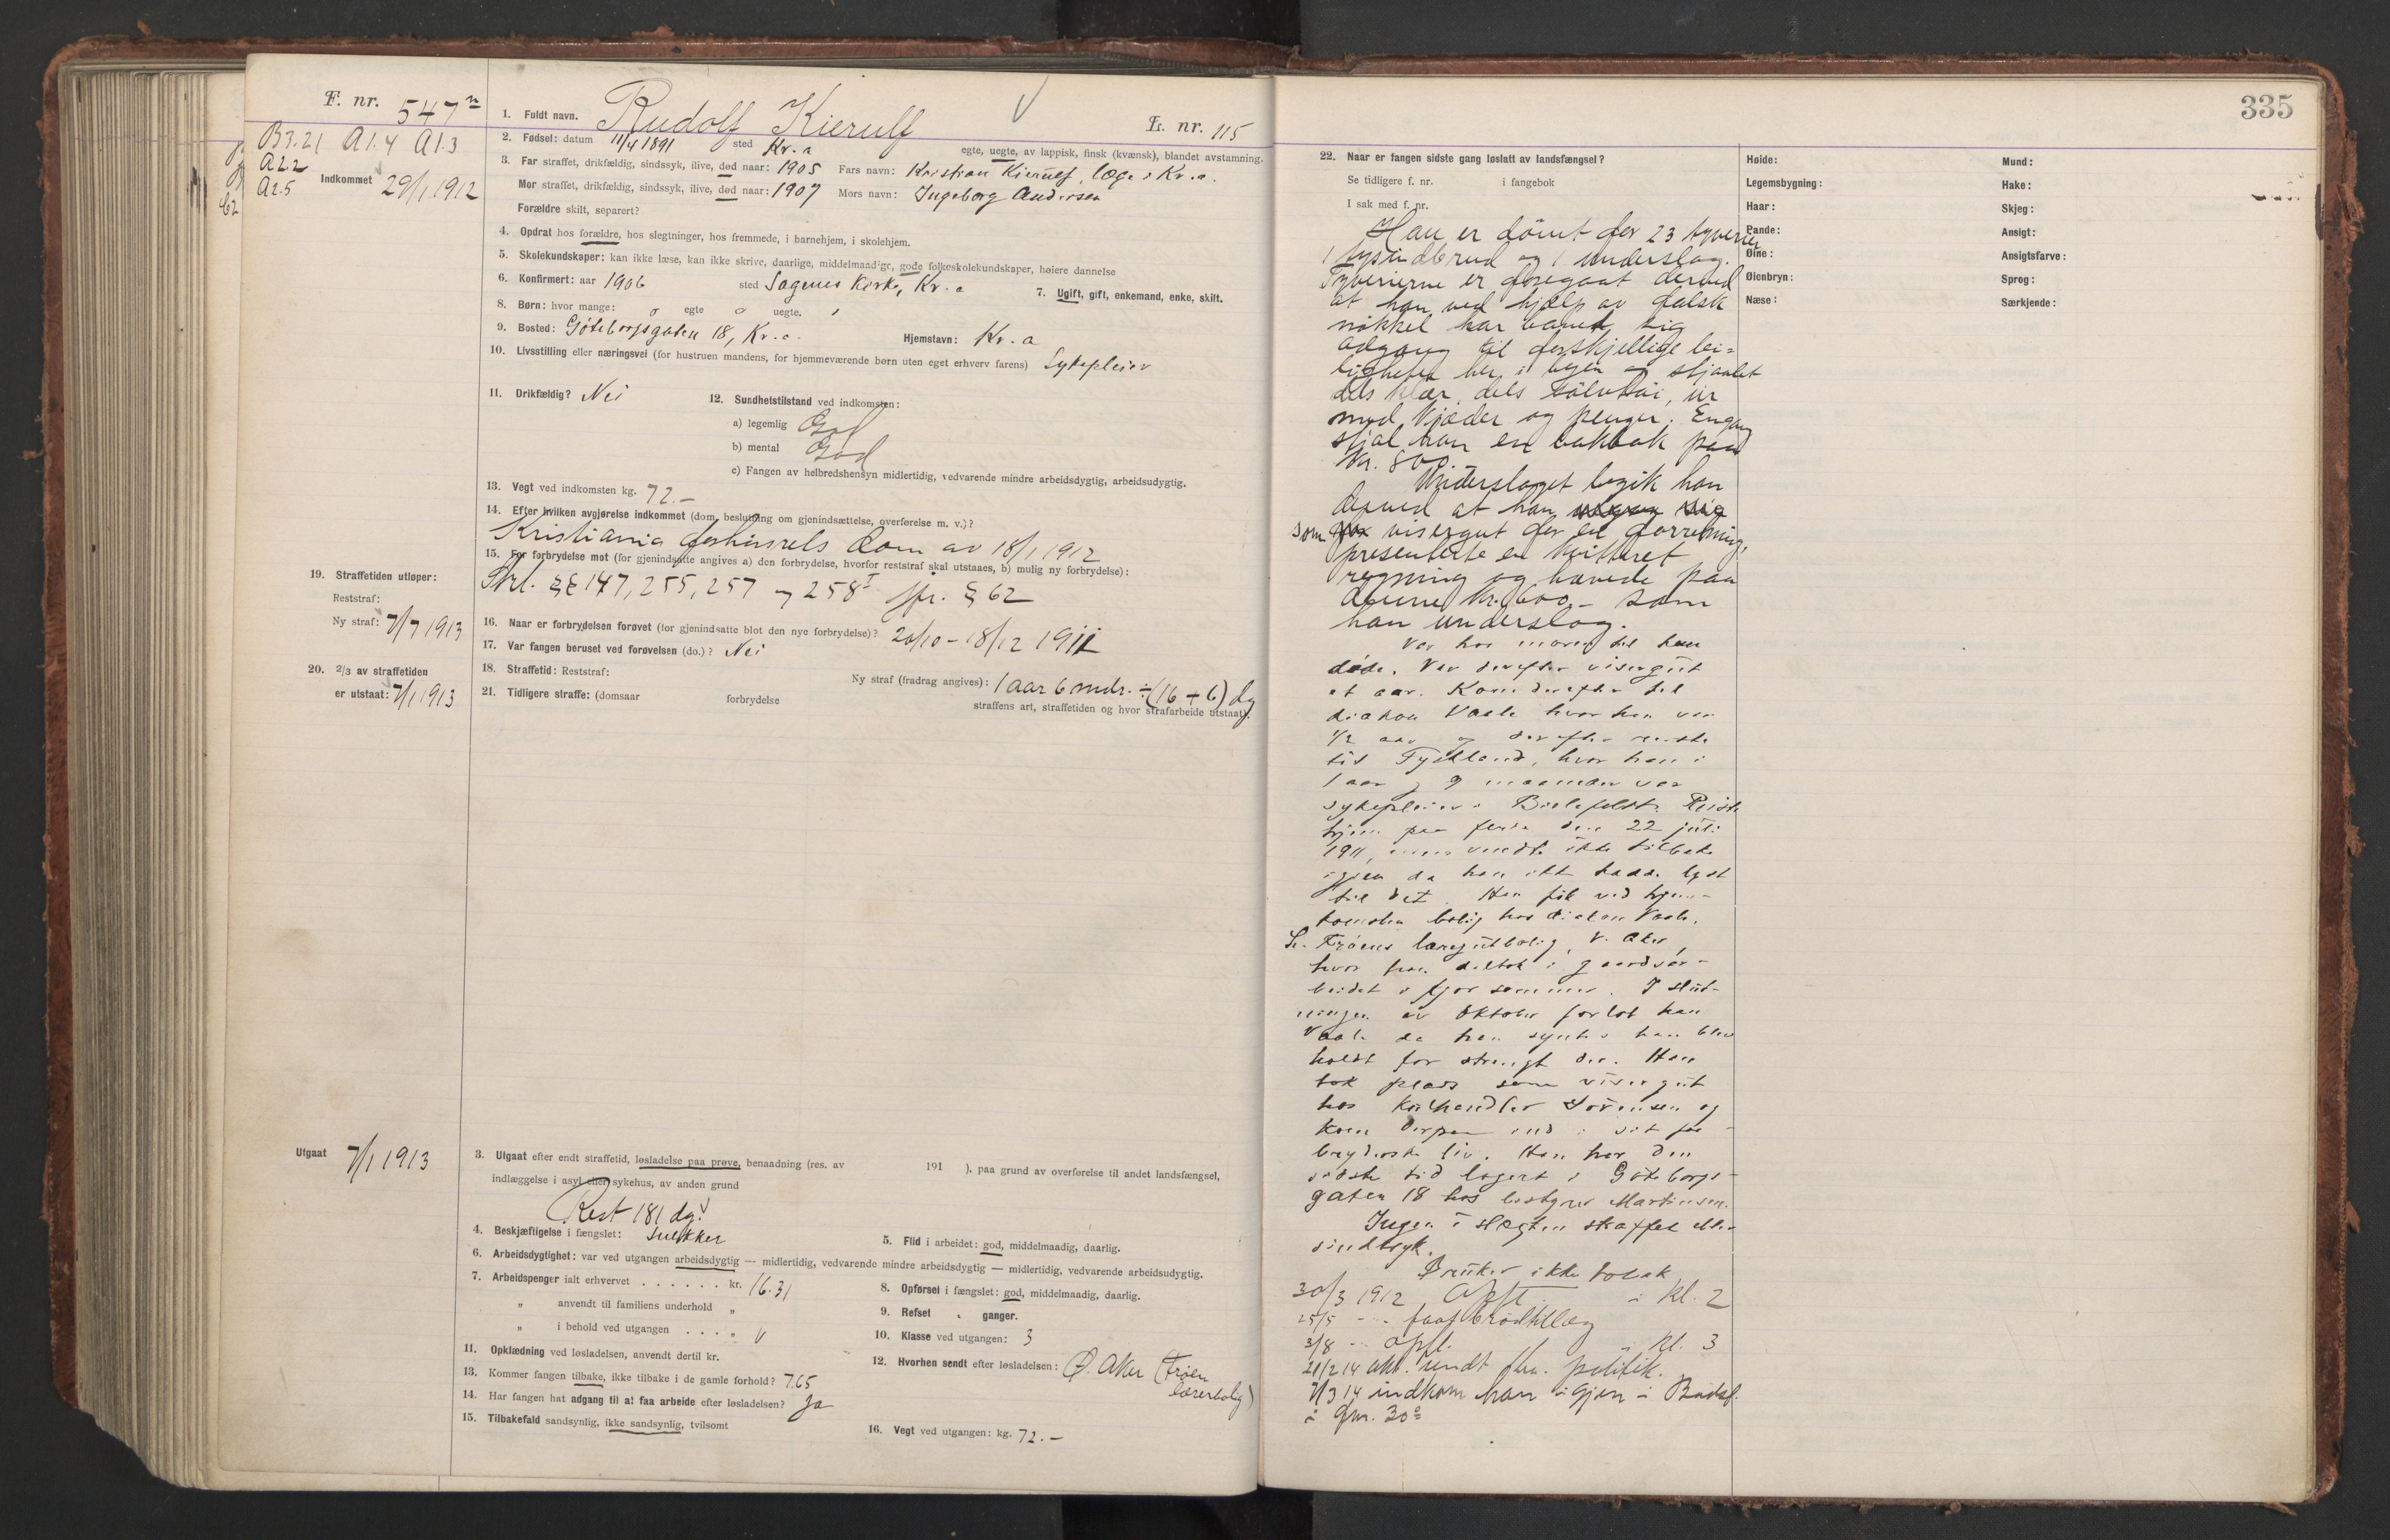 335
F. nr. 547
L. nr. 115
B3.21 A1.4 A1.3
A2.2
A2.5
Indkommet 29/1 1912
1. Fuldt navn. Rudolf Kierulf
2. Fødsel: datum 11/4 1891 sted Kr.a egte, uegte, av lappisk, finsk (kvænsk), blandet avstamning.
3. Far straffet, drikfældig, sindssyk, ilive, død naar: 1905 Fars navn: Kristian Kierulf, læge i Kr.a.
Mor straffet, drikfældig, sindssyk, ilive, død naar: 1907 Mors navn: Ingeborg Andersen
Forældre skilt, separert?
4. Opdrat hos forældre, hos slegtninger, hos fremmede, i barnehjem, i skolehjem.
5. Skolekundskaper: kan ikke læse, kan ikke skrive, daarlige, middelmaadige, gode folkeskolekundskaper, høiere dannelse
6. Konfirmert: aar 1906 sted Sagenes Kirke, Kr.a 7. Ugift, gift, enkemand, enke, skilt.
8. Børn: hvor mange: 0 egte 0 uegte.
9. Bosted: Göteborgsgaten 18, Kr.a. Hjemstavn: Kr.a
10. Livsstilling eller næringsvei (for hustruen mandens, for hjemmeværende børn uten eget erhverv farens) Sykepleier
11. Drikfældig? Nei 12. Sundhetstilstand ved indkomsten:
a) legemlig God
b) mental God
c) Fangen av helbredshensyn midlertidig, vedvarende mindre arbeidsdygtig, arbeidsudygtig.
13. Vegt ved indkomsten kg. 72.-
14. Efter hvilken avgjørelse indkommet (dom, beslutning om gjenindsættelse, overførelse m. v.)?
Kristiania forhørsrets dom av 18/1 1912
15. For forbrydelse mot (for gjenindsatte angives a) den forbrydelse, hvorfor reststraf skal utstaaes, b) mulig ny forbrydelse):
Strl. §§ 147, 255, 257 og 258 I jfr. § 62
19. Straffetiden utløper:
Reststraf:
Ny straf: 7/7 1913
16. Naar er forbrydelsen forøvet (for gjenindsatte blot den nye forbrydelse)? 20/10 - 18/12 1911
17. Var fangen beruset ved forøvelsen (do.)? Nei
20. 2/3 av straffetiden
er utstaat: 7/1 1913
18. Straffetid: Reststraf: Ny straf (fradrag angives): 1 aar 6 mdr. ÷ (16 + 6) dg
21. Tidligere straffe: (domsaar forbrydelse straffens art, straffetiden og hvor strafarbeide utstaat).
Utgaat 7/1 1913
3. Utgaat efter endt straffetid, løsladelse paa prøve, benaadning (res. av 191 ), paa grund av overførelse til andet landsfængsel,
indlæggelse i asyl eller sykehus, av anden grund
Rest 181 dg.
4. Beskjæftigelse i fængslet: snekker 5. Flid i arbeidet: god, middelmaadig, daarlig.
6. Arbeidsdygtighet: var ved utgangen arbeidsdygtig — midlertidig, vedvarende mindre arbeidsdygtig — midlertidig, vedvarende arbeidsudygtig.
7. Arbeidspenger ialt erhvervet . . . . . . kr. 16.31 8. Opførsel i fængslet: god, middelmaadig, daarlig.
" anvendt til familiens underhold " 9. Refset ganger.
" i behold ved utgangen . . . . " 10. Klasse ved utgangen: 3
11. Opklædning ved løsladelsen, anvendt dertil kr. 12. Hvorhen sendt efter løsladelsen: Ø. Aker (Frøen
lærerbolig)
13. Kommer fangen tilbake, ikke tilbake i de gamle forhold? 7.65
14. Har fangen hat adgang til at faa arbeide efter løsladelsen? Ja
15. Tilbakefald sandsynlig, ikke sandsynlig, tvilsomt 16. Vegt ved utgangen: kg. 72.-
22. Naar er fangen sidste gang løslatt av landsfængsel?
Se tidligere f. nr. i fangebok
I sak med f. nr.
Høide: Mund:
Legemsbygning: Hake:
Haar: Skjeg:
Pande: Ansigt:
Øine: Ansigtsfarve:
Øienbryn: Sprog:
Næse: Særkjende:
Han er dömt for 23 tyverier
1 tyvsindbrud og 1 underslag.
Tyverierne er foregaat derved
at han ved hjælp av falsk
nökkel har banet sig
adgang til forskjellige lei-
ligheter her i byen og stjaalet
dels klær, dels sölvtöi, ur
med kjæder og penger. Engang
stjal han en bankbok paa
kr. 800.
Underslaget begik han
derved at han
som visergut for en forretning,
presenterte en kvitteret
regning og hævede paa
denne kr. 600.- som
han underslog.
Var hos moren til hun
døde. Var derefter visergut
et aar. Kom derefter til
diakon Vaale hvor han var
1/2 aar og derefter reiste
til Tyskland, hvor han i
1 aar og 9 maaneder var
sykepleier i Bielefeldt. Reiste
hjem paa ferie den 22 juli
1911, men vendte ikke tilbake
igjen da han ikke hadde lyst
til det. Han fik ved hjem-
komsten bolig hos diakon Vaale,
St. Frøens lærerbolig, V. Aker,
hvor han deltok i gaardsar-
beidet i fjor sommer. I slut-
ningen av oktober forlot han
Vaale da han syntes han blev
holdt for strengt der. Han
tok plads som visergut
hos kulhandler Sørensen og
kom derpaa ind i sit for-
bryderske liv. Han har den
sidste tid logert i Göteborg-
gaten 18 hos bestyrer Martinsen.
Ingen i slegten straffet eller
sindssyk.
Bruker ikke tobak
30/3 1912 Opfl. i kl. 2
25/5 - - faat brødtillæg
3/8 - - opfl. i kl. 3
21/2 14 akt. sendt politik.
7/3 14 indkom han igjen i Bodsf.
i fnr. 30